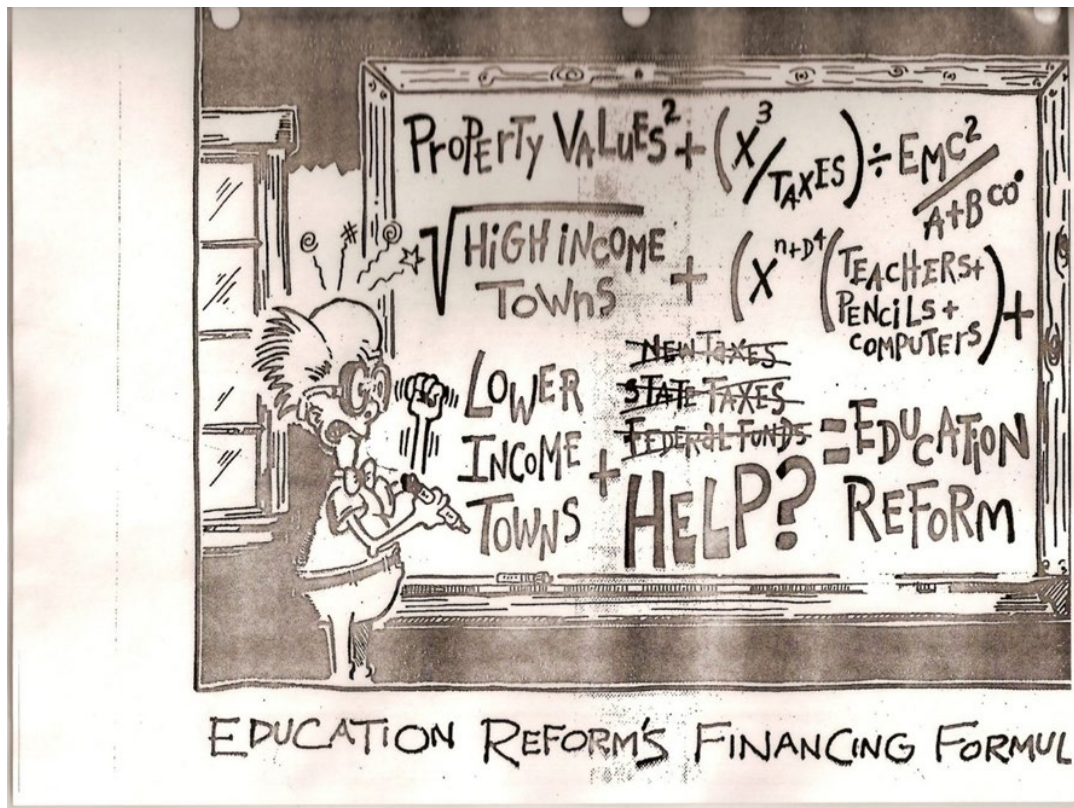 PROPERTY VALUES² + (X³/TAXES) ÷ EMC²/A+B CO°
√HIGH INCOME TOWNS + (X^n+D⁴ (TEACHERS+
PENCILS+
COMPUTERS) +
LOWER
INCOME
TOWNS
+
NEW TAXES
STATE TAXES
FEDERAL FUNDS
HELP?
= EDUCATION
REFORM
EDUCATION REFORM'S FINANCING FORMUL